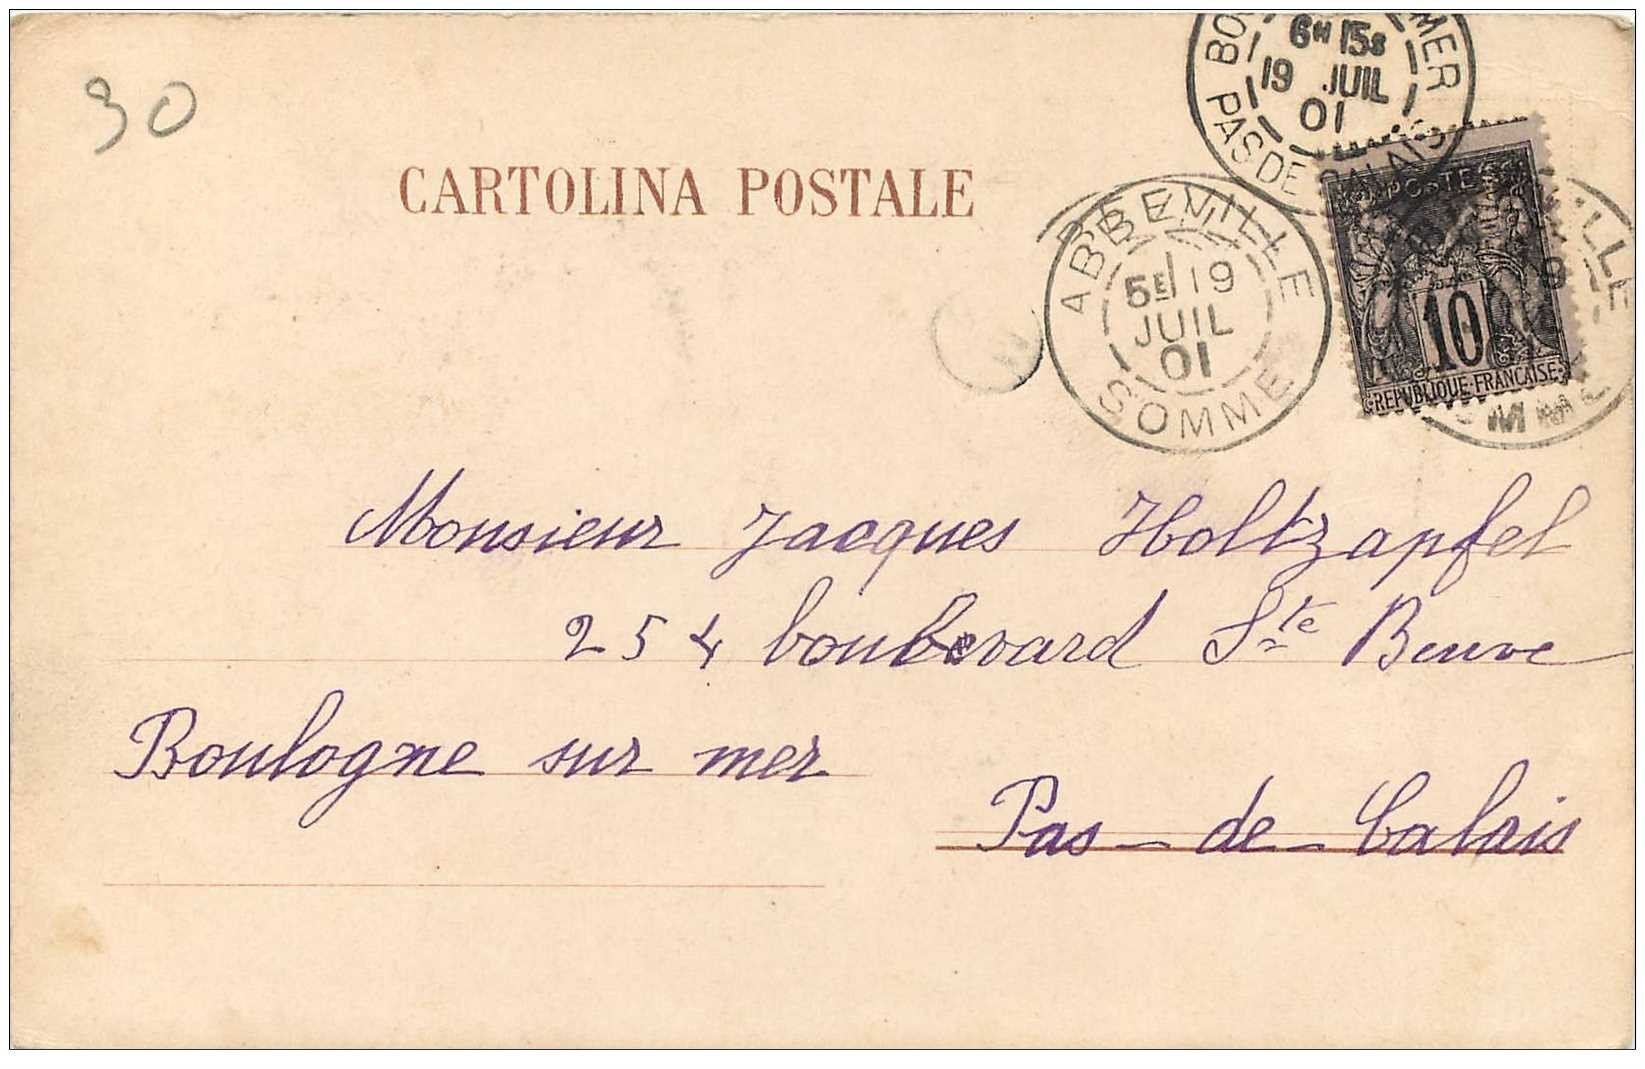 30
6H 15S
19 JUIL
01
PAS DE CALAIS
CARTOLINA POSTALE
ABBEVILLE
5E 19
JUIL
01
SOMME
POSTES
10
REPUBLIQUE FRANÇAISE
Monsieur Jacques Holtzapfel
254 boulevard Ste Beuve
Boulogne sur mer
Pas-de-Calais